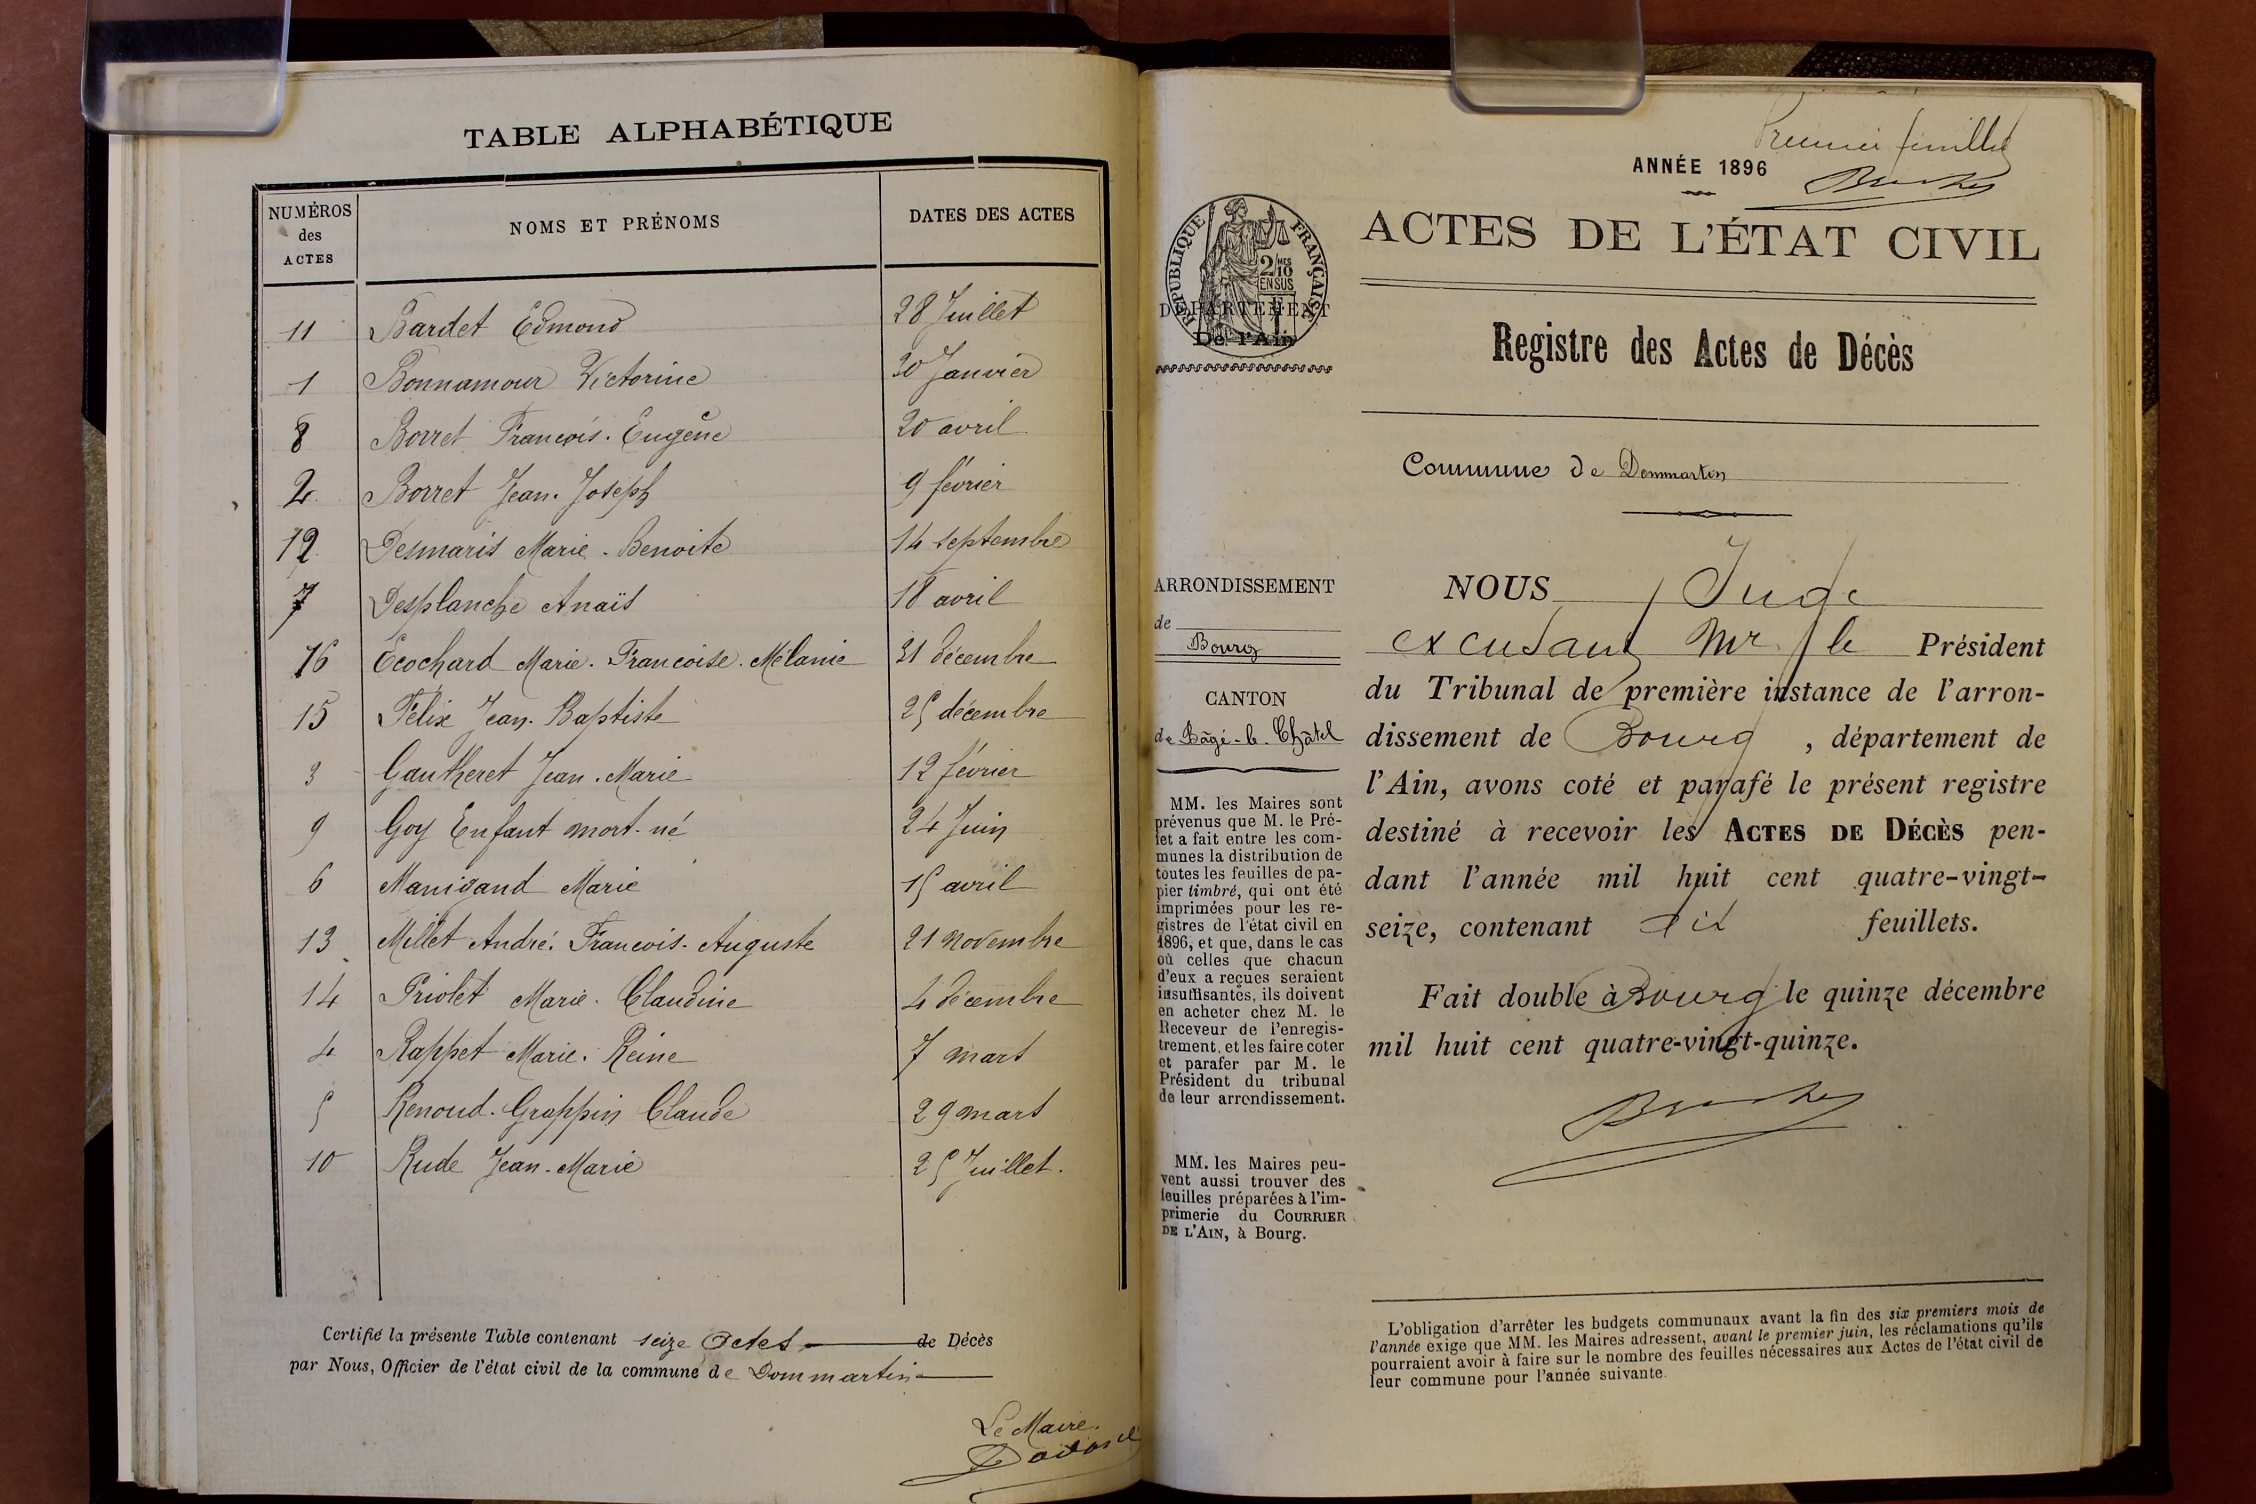 TABLE ALPHABÉTIQUE
NUMÉROS des ACTES NOMS ET PRÉNOMS DATES DES ACTES
11 Bardet Edmond 28 Juillet
1 Bonnamour Victorine 30 Janvier
8 Borret François. Eugène 20 avril
2 Borret Jean. Joseph 9 février
12 Desmaris Marie. Benoite 14 septembre
7 Desplanche Anaïs 18 avril
16 Ecochard Marie. Françoise. Mélanie 31 décembre
15 Félix Jean. Baptiste 25 décembre
3 Gautheret Jean. Marie 12 février
9 Goy Enfant mort-né 24 Juin
6 Manigand Marie 15 avril
13 Millet André. François. Auguste 21 novembre
14 Priolet Marie. Claudine 4 décembre
4 Rappet Marie. Reine 7 mars
5 Renoud. Grappin Claude 29 mars
10 Rude Jean-Marie 25 Juillet.
Certifié la présente Table contenant seize Actes de Décès
par Nous, Officier de l'état civil de la commune de Dommartin
Le Maire.
Premier feuillet
ANNÉE 1896
RÉPUBLIQUE FRANÇAISE
2/10 MES
EN SUS
DÉPARTEMENT
De l'Ain
ACTES DE L'ÉTAT CIVIL
Registre des Actes de Décès
Commune de Dommartin
ARRONDISSEMENT
de
Bourg
CANTON
de Bâgé-le-Châtel
MM. les Maires sont
prévenus que M. le Pré-
fet a fait entre les com-
munes la distribution de
toutes les feuilles de pa-
pier timbré, qui ont été
imprimées pour les re-
gistres de l'état civil en
1896, et que, dans le cas
où celles que chacun
d'eux a reçues seraient
insuffisantes, ils doivent
en acheter chez M. le
Receveur de l'enregis-
trement, et les faire coter
et parafer par M. le
Président du tribunal
de leur arrondissement.
MM. les Maires peu-
vent aussi trouver des
feuilles préparées à l'im-
primerie du COURRIER
DE L'AIN, à Bourg.
NOUS Juge
excusant Mr le Président
du Tribunal de première instance de l'arron-
dissement de Bourg, département de
l'Ain, avons coté et parafé le présent registre
destiné à recevoir les ACTES DE DÉCÈS pen-
dant l'année mil huit cent quatre-vingt-
seize, contenant dix feuillets.
Fait double à Bourg le quinze décembre
mil huit cent quatre-vingt-quinze.
L'obligation d'arrêter les budgets communaux avant la fin des six premiers mois de
l'année exige que MM. les Maires adressent, avant le premier juin, les réclamations qu'ils
pourraient avoir à faire sur le nombre des feuilles nécessaires aux Actes de l'état civil de
leur commune pour l'année suivante.